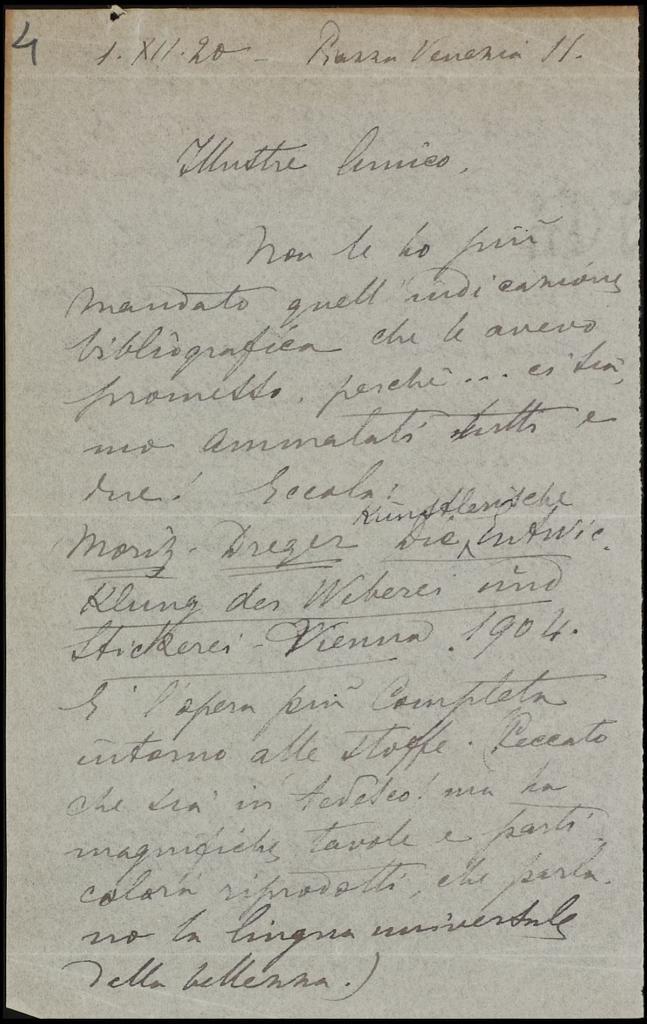 4
1. XII. 20 - Piazza Venezia 11.
Illustre Amico,
Non le ho più
mandato quell'indicazione
bibliografica che le avevo
promesso, perchè... ci sia-
mo ammalati tutti e
due! Eccola!
Künstlerische
Moriz - Dreger Die Entwic-
klung der Weberei und
Stickerei - Vienna. 1904.
E' l'opera più completa
intorno alle stoffe. (Peccato
che sia in tedesco! ma ha
magnifiche tavole e parti-
colari riprodotti, che parla-
no la lingua universale
della bellezza.)